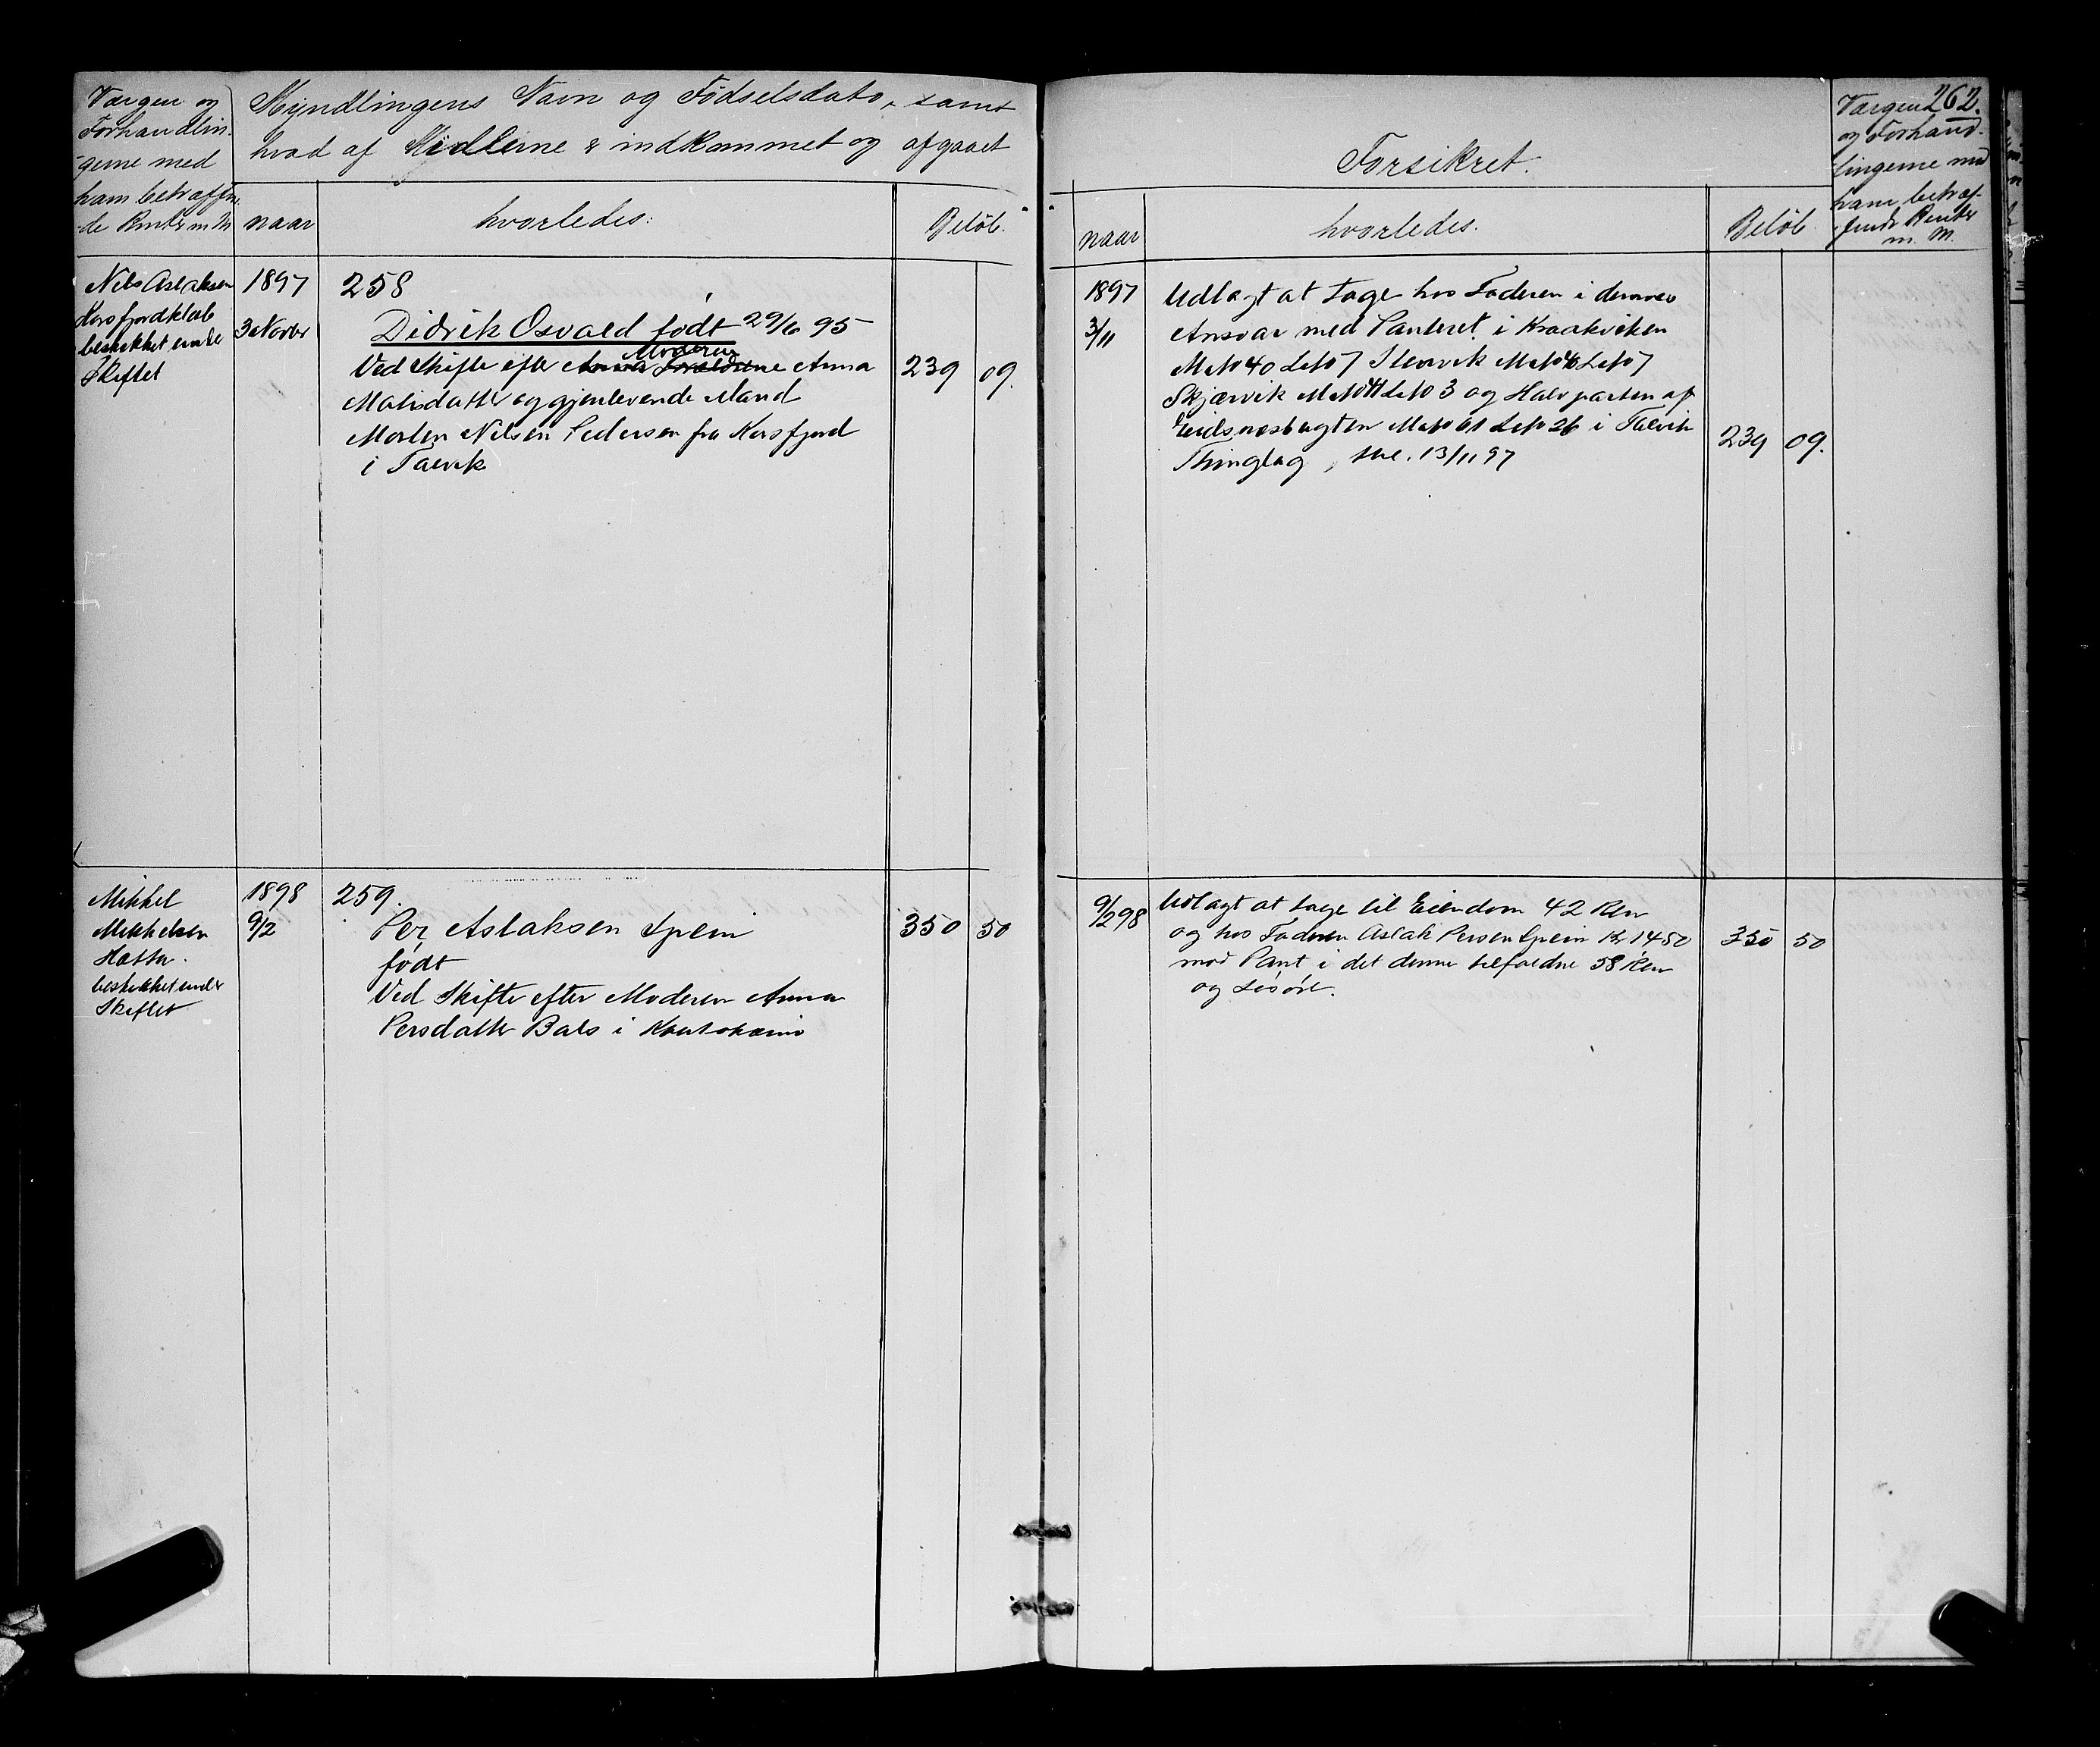 Værgen og
Forhandlin-
gerne med
ham betræffen-
de Renter m. M
Myndlingens Navn og Fødselsdato, samt
hvad af Midlerne er indkommet og afgaaet
naar
hvorledes:
Beløb.
Nils Aslaksen
Korsfjordklub
beskikket under
Skiftet
1897
3 Novbr
258
Didrik Osvald født 29/6 95
Moderen
Ved Skifte efter Anna
Matisdatter og gjenlevende Mand
Morten Nilsen Pedersen fra Korsfjord
i Talvik
239 09.
Mikkel
Mikkelsen
Hætta.
beskikket under
Skiftet
1898
9/2
259.
Per Aslaksen Spein
født
Ved Skifte efter Moderen Anna
Persdatter Bals i Kautokæino
350 50
262.
Forsikret.
Værgen
og Forhand-
lingerne med
ham betræf-
fende Renter
m. M.
naar
hvorledes.
Beløb
1897
3/11
Udlagt at tage hos Faderen i dennes
Ansvar med Panteret i Kraakviken
M No 40 L No 7 Storvik M No 40 L No 7
Skjærvik M No 41 L No 3 og Halvparten af
Eidsnesbugten M No 61 L No 26 i Talvik
Thinglag, 13/11 97
239 09.
9/2 98
Udlagt at tage til Eiendom 42 Ren
og hos Faderen Aslak Persen Spein Kr 14 50
mod Pant i det denne tilfaldne 58 Ren
og Løsøre.
350 50